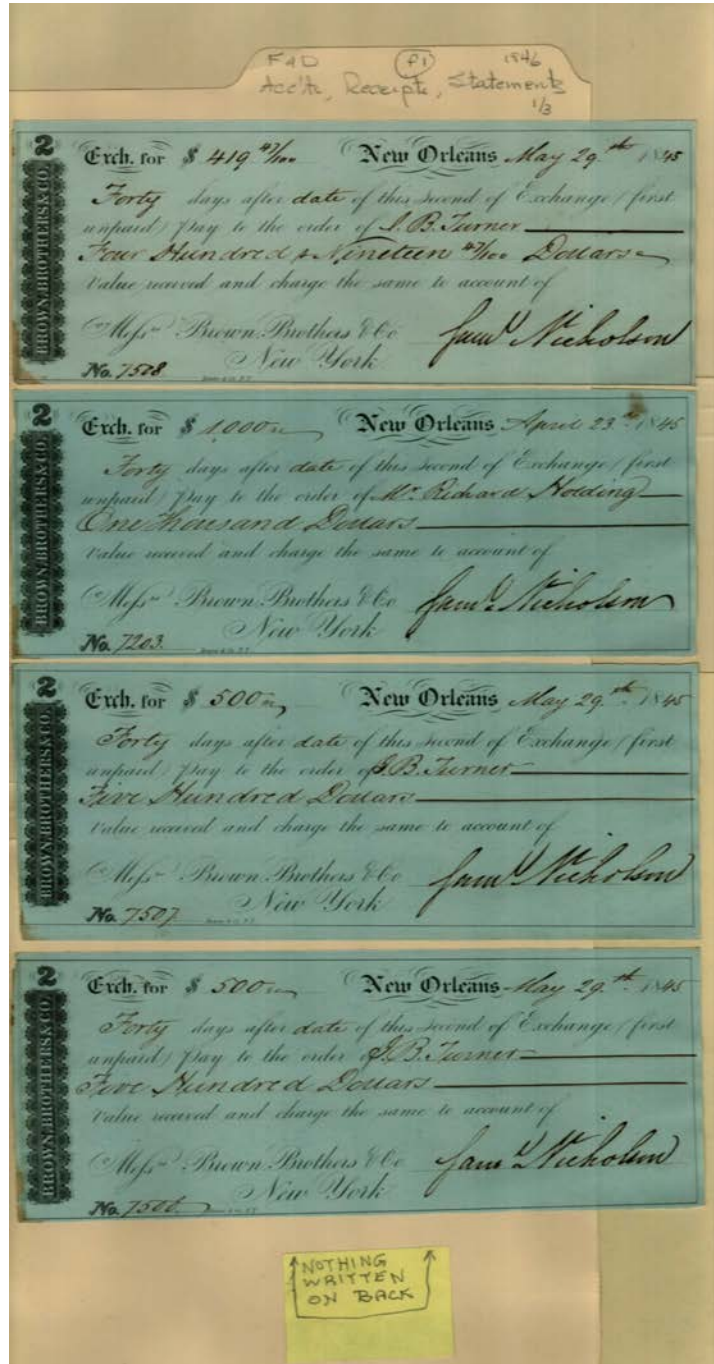 F&D (P1) 1846
Acc'ts, Receipts, Statements
1/3
2
BROWN BROTHERS & CO.
Exch. for $ 419 47/100 New Orleans May 29th 1845
Forty days after date of this second of Exchange (first
unpaid) Pay to the order of J. B. Turner
Four Hundred & Nineteen 47/100 Dollars
Value received and charge the same to account of
Messrs Brown Brothers & Co
New York
Saml Nicholson
No. 7508
2
BROWN BROTHERS & CO.
Exch. for $ 1,000 New Orleans April 23rd 1845
Forty days after date of this second of Exchange (first
unpaid) Pay to the order of Mr. Richard Holding
One Thousand Dollars
Value received and charge the same to account of
Messrs Brown Brothers & Co
New York
Saml Nicholson
No. 7203
2
BROWN BROTHERS & CO.
Exch. for $ 500 New Orleans May 29th 1845
Forty days after date of this second of Exchange (first
unpaid) Pay to the order of J. B. Turner
Five Hundred Dollars
Value received and charge the same to account of
Messrs Brown Brothers & Co
New York
Saml Nicholson
No. 7507
2
BROWN BROTHERS & CO.
Exch. for $ 500 New Orleans May 29th 1845
Forty days after date of this second of Exchange (first
unpaid) Pay to the order of J. B. Turner
Five Hundred Dollars
Value received and charge the same to account of
Messrs Brown Brothers & Co
New York
Saml Nicholson
No.
NOTHING
WRITTEN
ON BACK